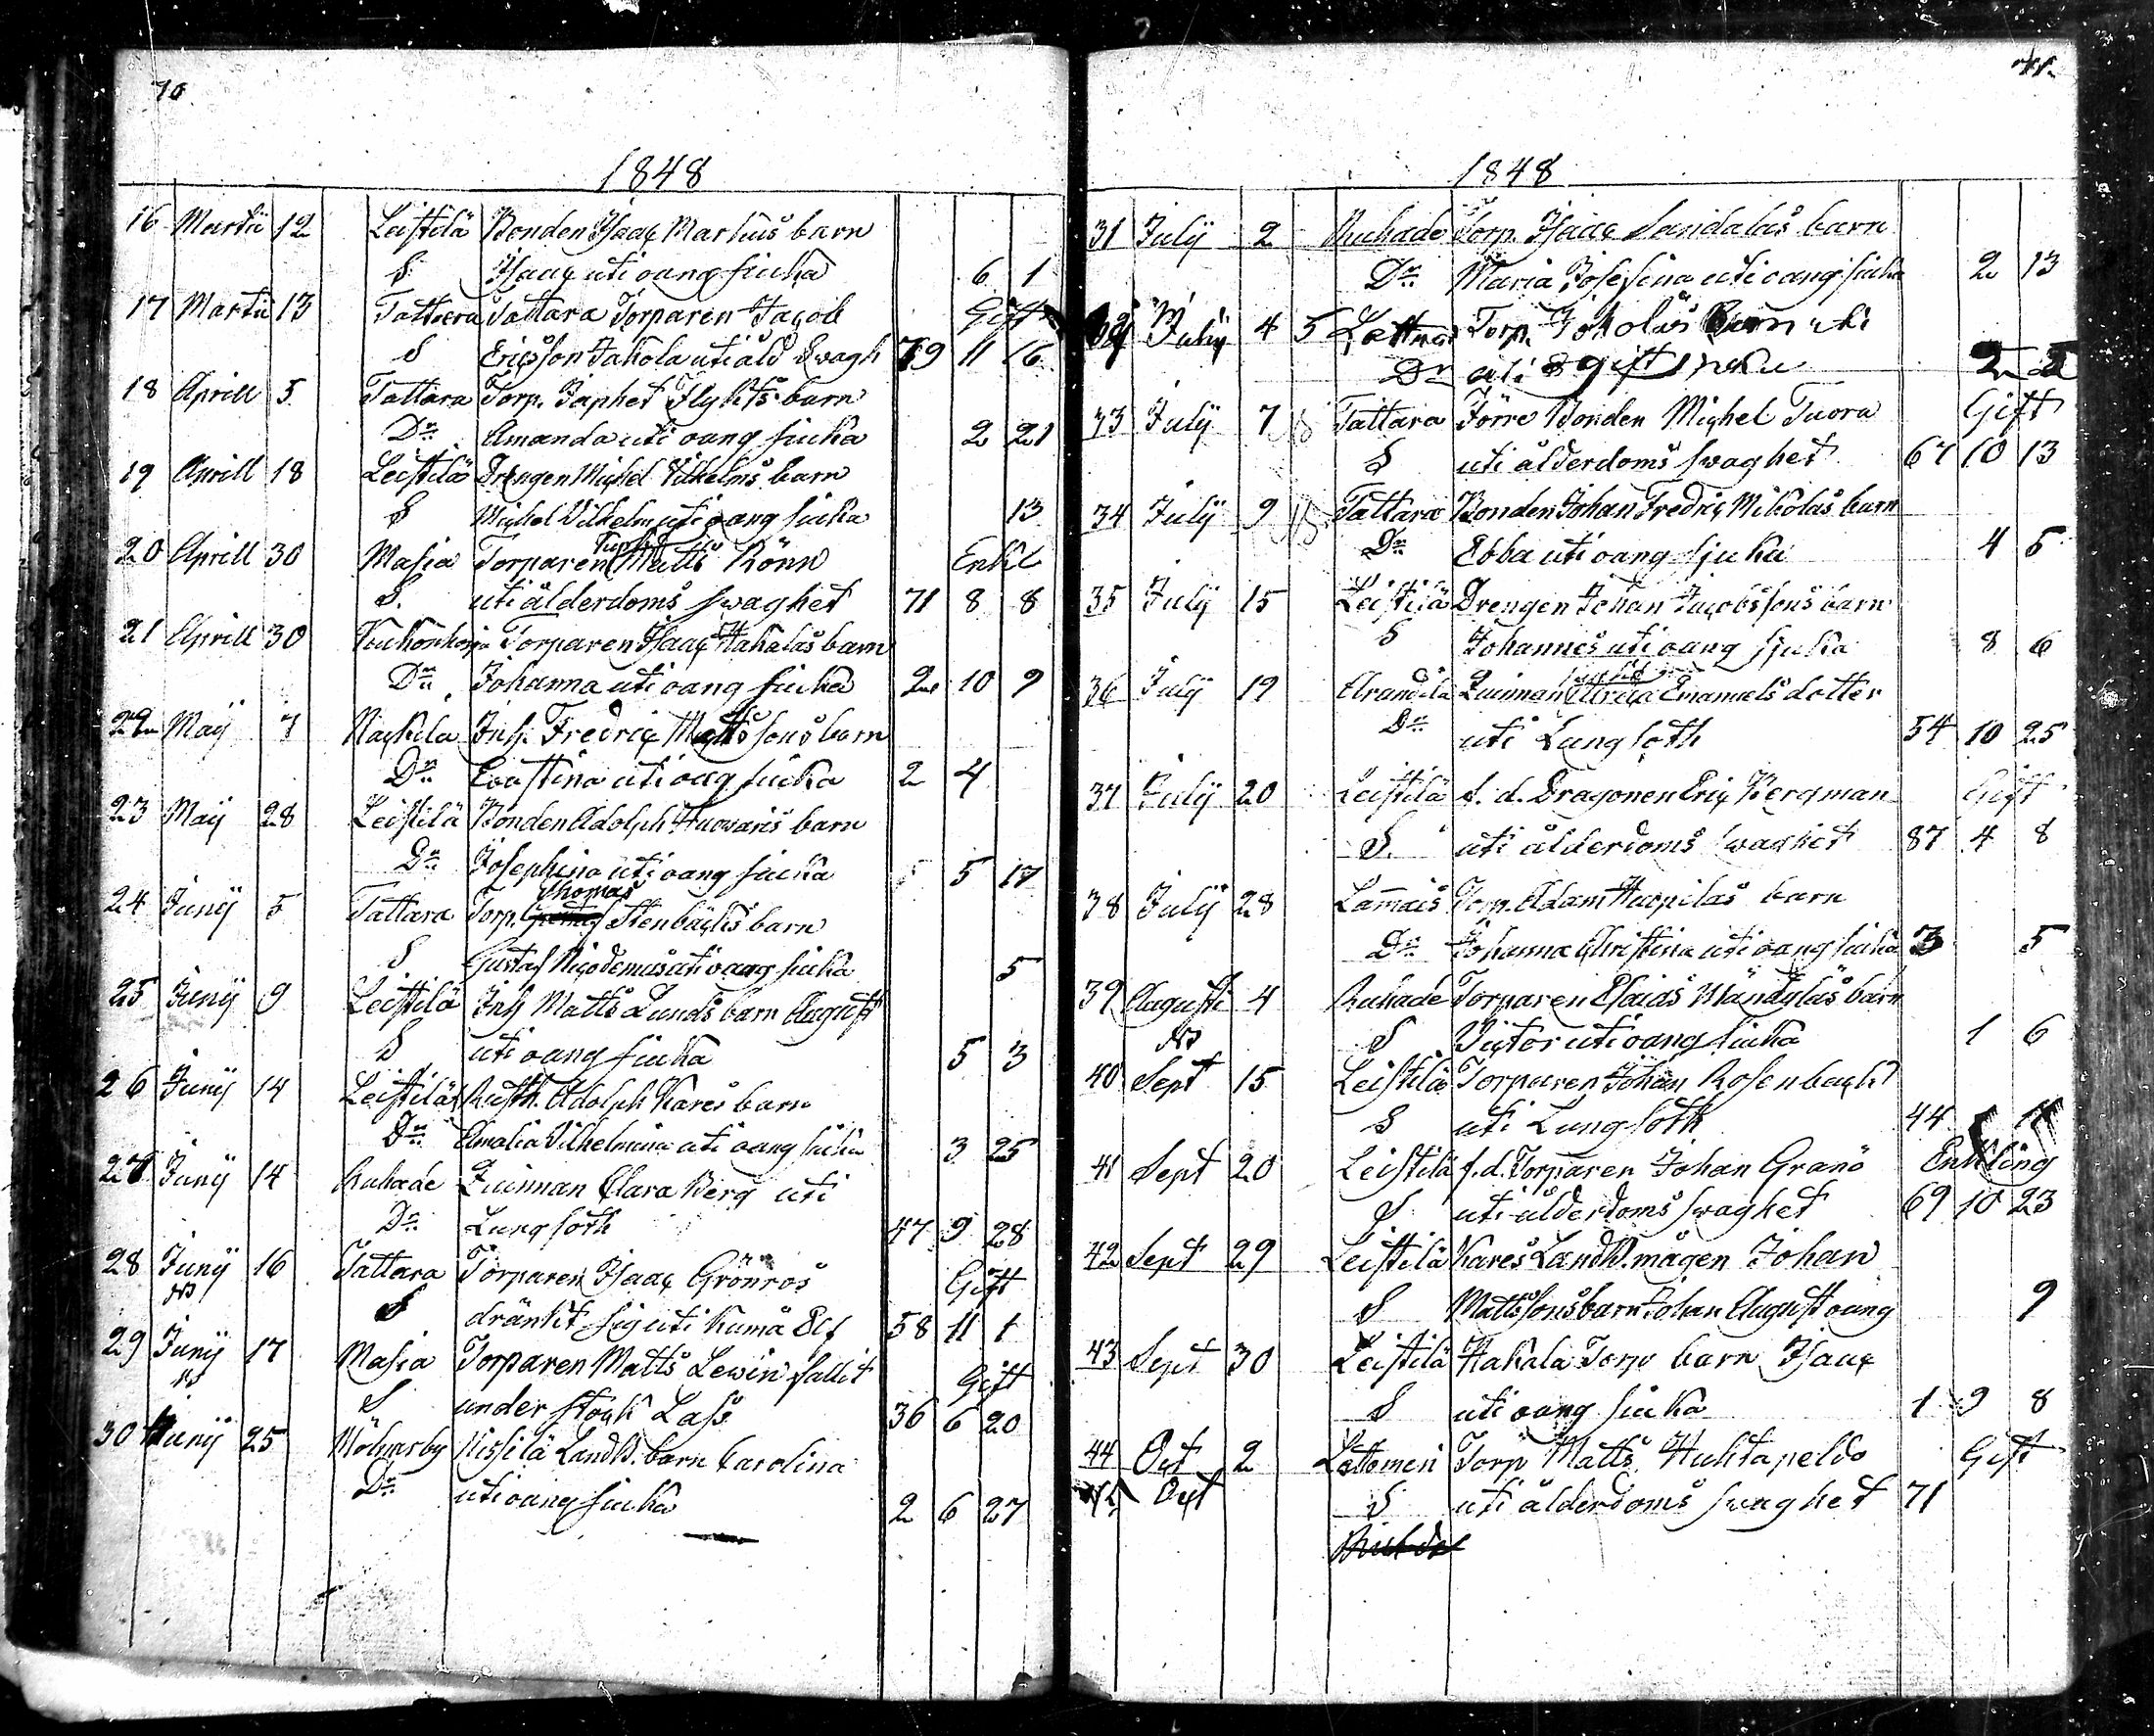 70
1848
16 Martii 12 Leistilä Bonden Isaac Markus barn
S Isaac uti oang siuka 6 1
17 Martii 13 Tattara Tattara Torparen Jacob Gift
S Ericsson Jakola uti åld Swagh 79 11 16
18 Aprill 5 Tattara Torp. Japhet Flykts barn
Dr Amanda uti oang siuka 2 21
19 Aprill 18 Leistilä Drengen Michel Vilhelms barn
S Michel Vilhelm uti oang siuka 13
20 Aprill 30 Masia Torparen Matts Rönn Enkl
S. uti ålderdoms swaghet 71 8 8
21 Aprill 30 Torparen Isaac Hakalas barn
Dr Johanna uti oang siuka 2 10 9
22 Maij 7 Nackila Inh. Fredric Mattssons barn
Dr Evastina uti oag siuka 2 4
23 Maij 28 Leistilä Bonden Adolph Huovaris barn
Dr Josephina uti oang siuka 5 17
24 Junij 5 Tattara Torp. Thomas Stenbäcks barn
S Gustaf Nicodemus uti oang siuka 5
25 Junij 9 Leistilä Inh Matts Lunds barn August
S uti oang siuka 5 3
26 Junij 14 Leistilä Rusth. Adolph Kares barn
Dr Amalia Vilhelmina uti oang siuka 3 25
27 Junij 14 Ruhade Quinnan Clara Berg uti
Dr Lungsoth 47 9 28
28 Junij 16 Tattara Torparen Isaac Grönros Gift
S dränkt sig uti Kumå Elf 58 11 1
29 Junij 17 Masia Torparen Matts Lewin fallit Gift
S under stock Lass 36 6 20
30 Junij 25 Kissilä Landb. barn Carolina
Dr uti oang siuka 2 6 27
71.
1848
31 Julij 2 Ruhade Torp. Isaac Sandalas barn
Dr Maria Josefina uti oang siuka 2 13
32 Julij 4 5 Torp. barn
Dr uti
33 Julij 7 Tattara Förre Bonden Michel Tuora Gift
S uti ålderdoms swaghet 67 10 13
34 Julij 9 Tattara Bonden Johan Fredric Mikolas barn
Dr Ebba uti oang sjuka 4 5
35 Julij 15 Leistilä Drengen Johan Jacobssons barn
S Johannes uti oang sjuka 8 6
36 Julij 19 Arandila Quinnan Emanuels dotter
Dr uti Lungsoth 54 10 25
37 Julij 20 Leistilä f. d. Dragonen Eric Bergman Gift
S. uti ålderdoms swaghet 87 4 8
38 Julij 28 Lamais Torp. Adam Huopilas barn
Dr Johanna Christina uti oang siuka 3 5
39 Augusti 4 Ruhade Torparen Esaias Mändyläs barn
S Victor uti oang siuka 1 6
40 Sept 15 Leistilä Torparen Johan Rosenback
S uti Lungsoth 44
41 Sept 20 Leistilä f.d. Torparen Johan Granö Enkling
S uti ålderdoms swaghet 69 10 23
42 Sept 29 Leistilä Kares Landb. mågen Johan
S Mattssons barn Johan August oang 9
43 Sept 30 Leistilä Hakala Torp barn Isaac
S uti oang siuka 1 9 8
44 Oct 2 Lattomeri Torp Matts Huhtapeldo Gift
45 Oct S uti ålderdoms swaghet 71